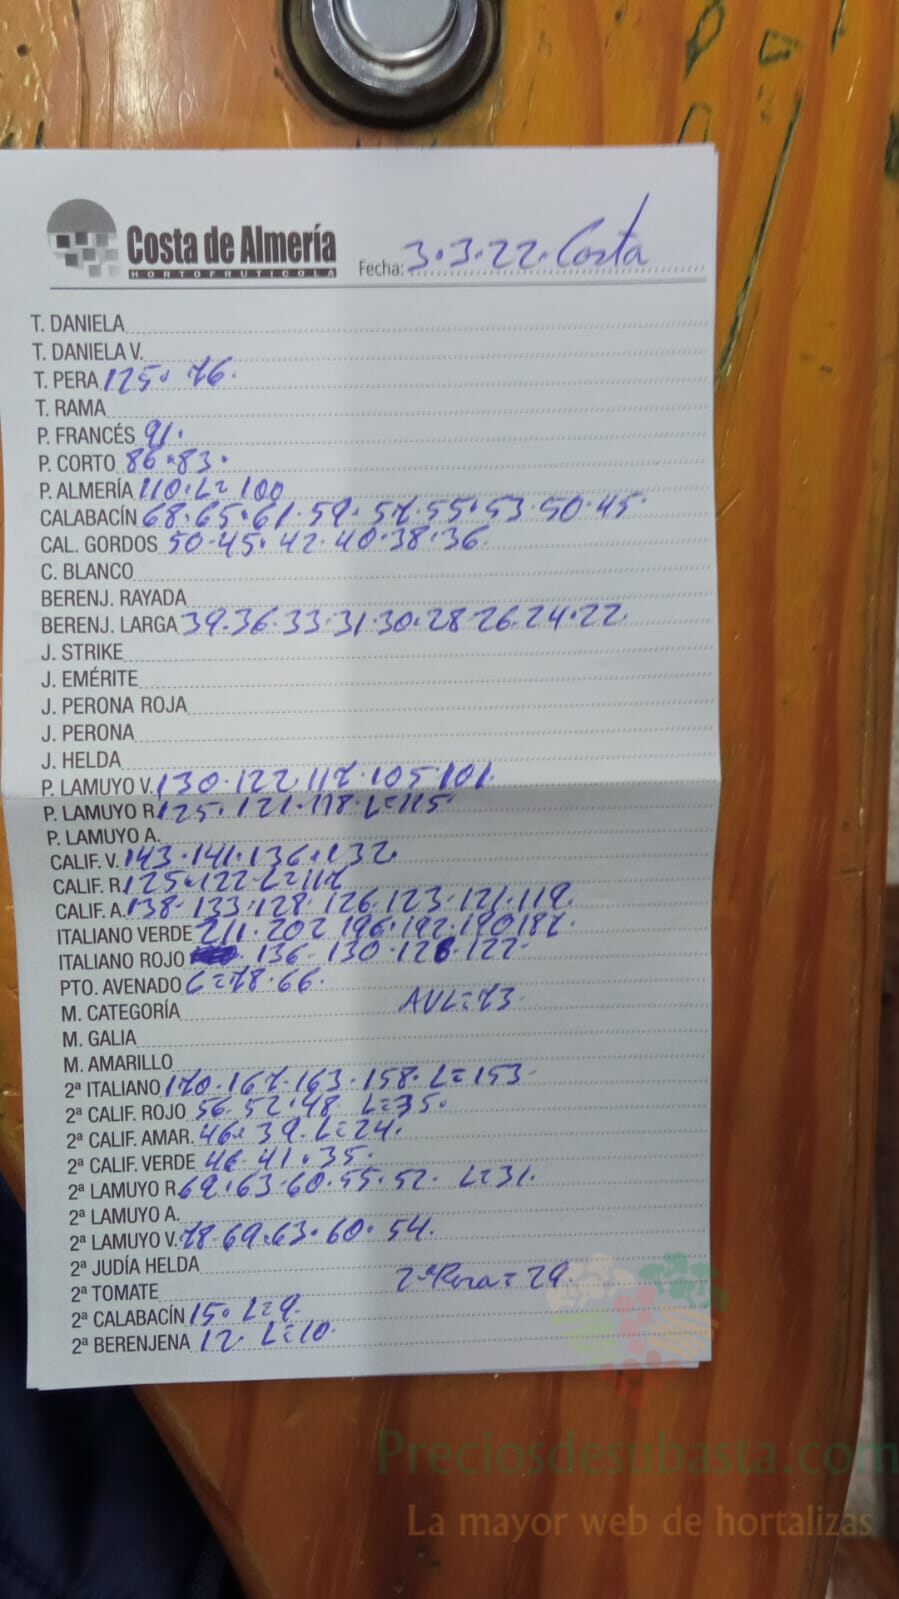 Costa de Almería
HORTOFRUTICOLA
Fecha: 3.3.22. Costa
T. DANIELA
T. DANIELA V.
T. PERA 125. 76.
T. RAMA
P. FRANCÉS 91.
P. CORTO 86.83.
P. ALMERÍA 110. L=100
CALABACÍN 68.65.61.59.57.55.53.50.45
CAL. GORDOS 50.45.42.40.38.36.
C. BLANCO
BERENJ. RAYADA
BERENJ. LARGA 39.36.33.31.30.28.26.24.22.
J. STRIKE
J. EMÉRITE
J. PERONA ROJA
J. PERONA
J. HELDA
P. LAMUYO V. 130.122.117.105.101.
P. LAMUYO R. 125.121.118. L=115
P. LAMUYO A.
CALIF. V. 143.141.136.132.
CALIF. R. 125.122. L=117
CALIF. A. 138.133.128.126.123.121.119.
ITALIANO VERDE 211.202.196.192.190.187.
ITALIANO ROJO 136.130.126.122
PTO. AVENADO C=78.66.
M. CATEGORÍA AVL=73.
M. GALIA
M. AMARILLO
2ª ITALIANO 170.167.163.158. L=153
2ª CALIF. ROJO 56.52.48 L=35.
2ª CALIF. AMAR. 46.39. L=24.
2ª CALIF. VERDE 46.41.35.
2ª LAMUYO R. 69.63.60.55.52. L=31.
2ª LAMUYO A.
2ª LAMUYO V. 78.69.63.60.54.
2ª JUDÍA HELDA
2ª TOMATE 2ª Pera=29.
2ª CALABACÍN 15. L=9.
2ª BERENJENA 12 L=10.
Preciosdesubasta.com
La mayor web de hortalizas